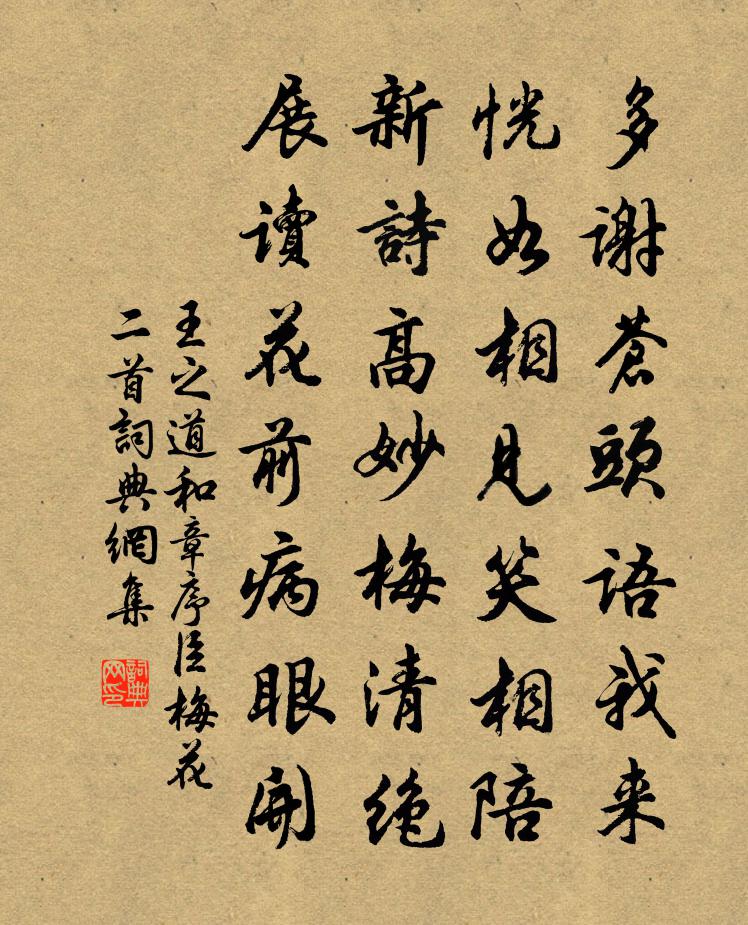 多謝蒼頭語我来
恍如相見笑相陪
新詩高妙梅清絶
展讀花前病眼開
王之道和章序臣梅花
二首詞典網集
詞典网印